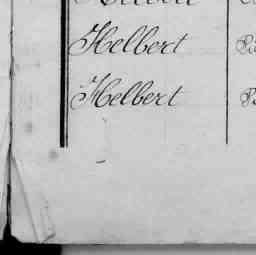 Helbert
Helbert